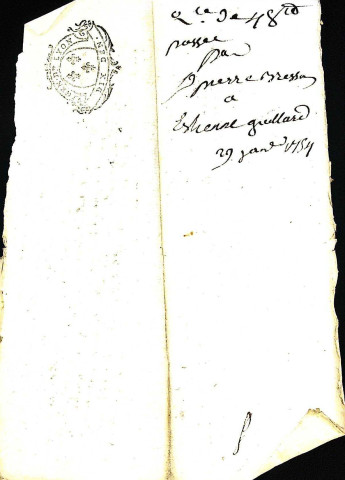 q.ce de 48 #
passee
par
pierre Bresson
a
Etienne guillard
29 janv 1754